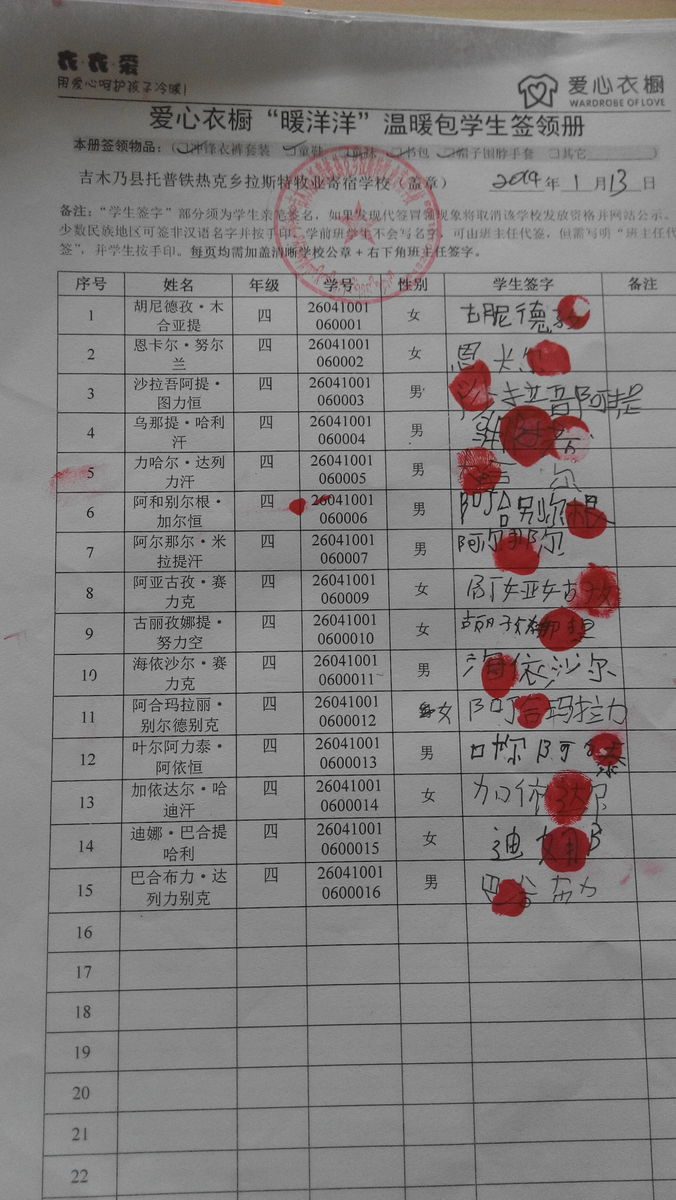 衣·衣·爱
用爱心呵护孩子冷暖!
爱心衣橱
WARDROBE OF LOVE
爱心衣橱“暖洋洋”温暖包学生签领册
本册签领物品：（□冲锋衣裤套装 □童鞋 □童袜 □书包 □帽子围脖手套 □其它
吉木乃县托普铁热克乡拉斯特牧业寄宿学校（盖章） 2019年 1 月 13 日
备注：“学生签字”部分须为学生亲笔签名，如果发现代签冒领现象将取消该学校发放资格并网站公示。
少数民族地区可签非汉语名字并按手印。学前班学生不会写名字，可由班主任代签，但需写明“班主任代
签”，并学生按手印。每页均需加盖清晰学校公章+右下角班主任签字。
序号 姓名 年级 学号 性别 学生签字 备注
1 胡尼德孜·木合亚提 四 26041001060001 女
2 恩卡尔·努尔兰 四 26041001060002 女 恩卡尔
3 沙拉吾阿提·图力恒 四 26041001060003 男
4 乌那提·哈利汗 四 26041001060004 男
5 力哈尔·达列力汗 四 26041001060005 男
6 阿和别尔根·加尔恒 四 26041001060006 男 阿合别尔根
7 阿尔那尔·米拉提汗 四 26041001060007 男 阿尔那尔
8 阿亚古孜·赛力克 四 26041001060009 女
9 古丽孜娜提·努力空 四 260410010600010 女
10 海依沙尔·赛力克 四 260410010600011 男 海依沙尔
11 阿合玛拉丽·别尔德别克 四 260410010600012 女 阿合玛拉力
12 叶尔阿力泰·阿依恒 四 260410010600013 男
13 加依达尔·哈迪汗 四 260410010600014 女 加依达尔
14 迪娜·巴合提哈利 四 260410010600015 女 迪娜
15 巴合布力·达列力别克 四 260410010600016 男 巴合布力
16
17
18
19
20
21
22